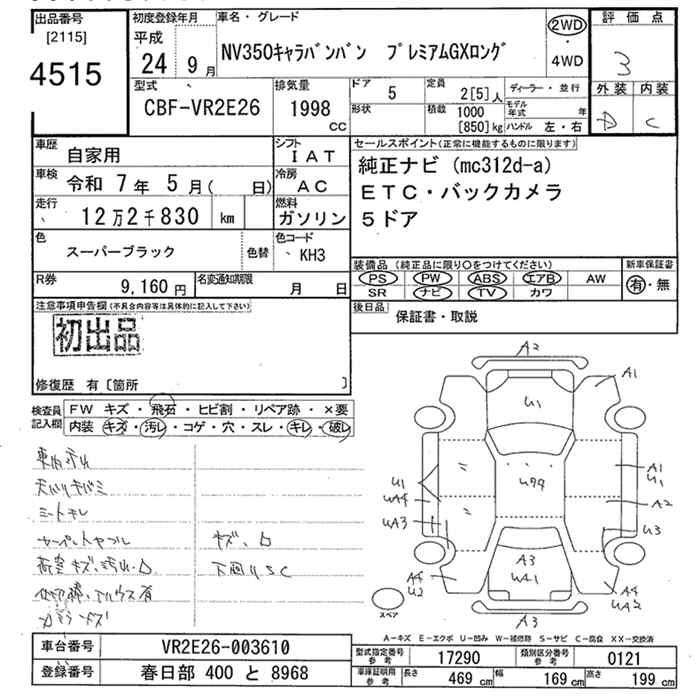 出品番号
[2115]
4515
初度登録年月
平成
24 9月
車名・グレード
NV350キャラバンバン プレミアムGXロング
2WD
・
4WD
評価点
3
外装 内装
D C
型式
CBF-VR2E26
排気量
1998
CC
ドア
5
形状
定員
2[5]人
積載 1000
[850]kg
ディーラー・並行
モデル年式 年
ハンドル 左・右
車歴
自家用
シフト
IAT
車検 令和 7年 5月( 日)
冷房
AC
走行
12万2千830 km
燃料
ガソリン
色
スーパーブラック
色替
色コード
KH3
R券
9,160円
名変通知期限
月 日
セールスポイント(正常に機能するものに限ります)
純正ナビ(mc312d-a)
ETC・バックカメラ
5ドア
装備品(純正品に限り○をつけてください)
PS PW ABS エアB AW
SR ナビ TV カワ
新車保証書
有・無
後日品
保証書・取説
注意事項申告欄(不具合内容等は具体的に記入して下さい)
初出品
修復歴 有〔箇所 〕
検査員
記入欄
FW キズ・飛石・ヒビ割・リペア跡・×要
内装 キズ・汚レ・コゲ・穴・スレ・キレ・破レ
シートキレ
キズ、
A2
A1
U1
A1
U1
U1
UA4
UA3
A2
U3
A3
UA1
A4
U2
A4
UA2
A3
スペア
A-キズ E-エクボ U-凹み W-補修跡 S-サビ C-腐食 XX-交換済
車台番号 VR2E26-003610
登録番号 春日部 400 と 8968
型式指定番号
参考
17290
類別区分番号
参考
0121
車庫証明用
参考
長さ 469cm 幅 169cm 高さ 199cm